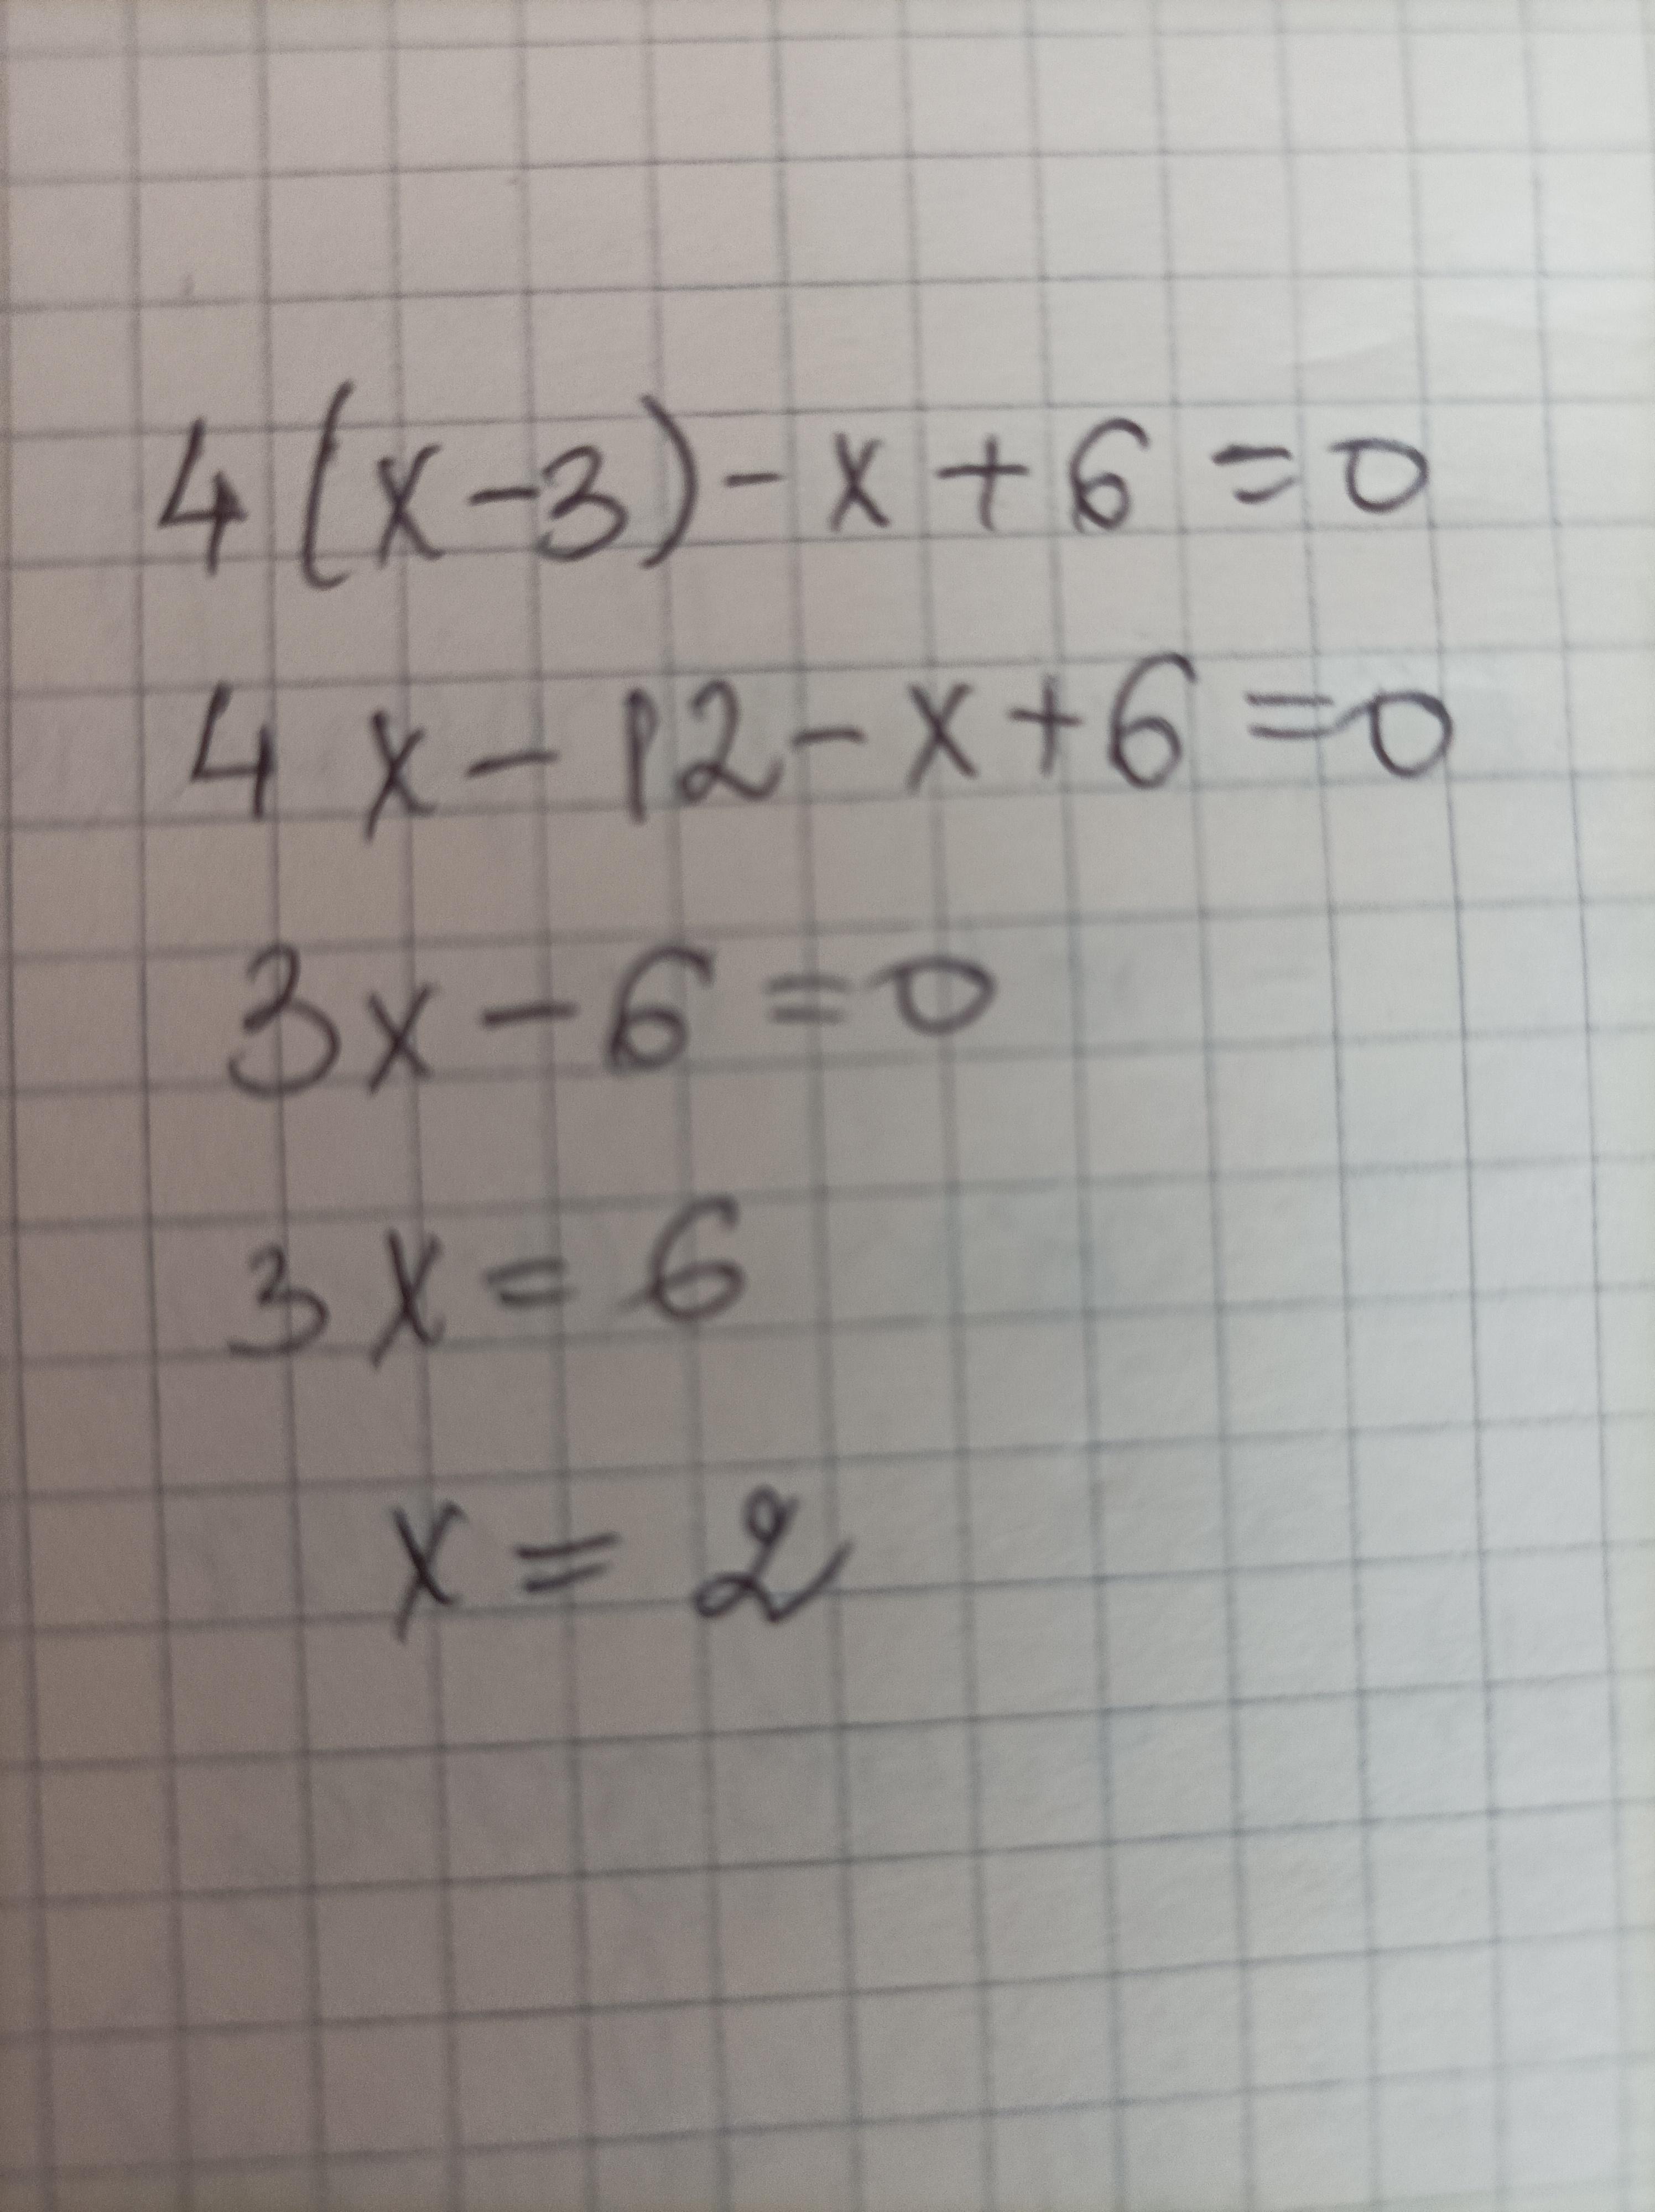 4(x-3)-x+6=0
4x-12-x+6=0
3x-6=0
3x=6
x=2